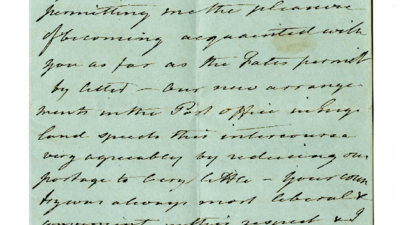 permitting me the pleasure
of becoming acquainted with
you as far as the Fates permit
by letter – Our new arrange
ments in the Post office in Eng
land speeds this intercourse
very agreeably by reducing our
postage to very little – Your coun
try was always most liberal &
convenient in this respect & I